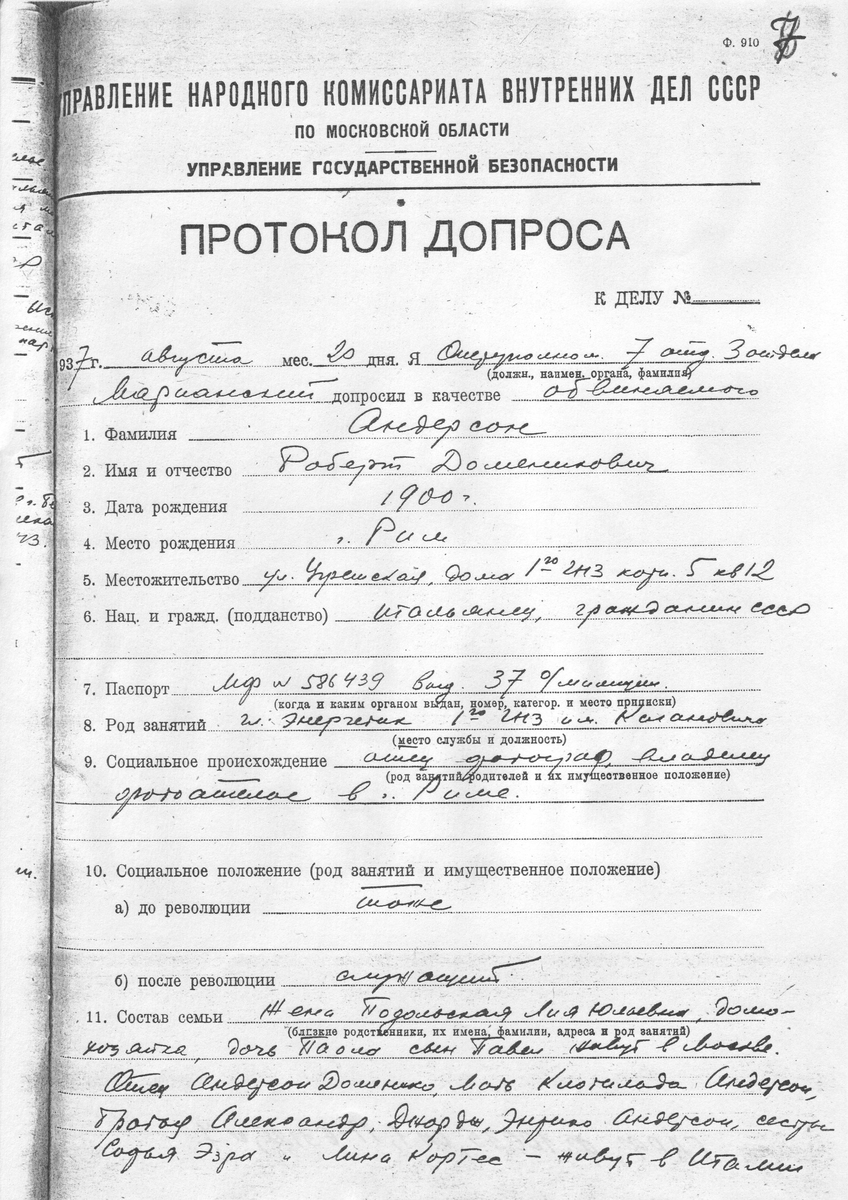 Ф. 910
УПРАВЛЕНИЕ НАРОДНОГО КОМИССАРИАТА ВНУТРЕННИХ ДЕЛ СССР
ПО МОСКОВСКОЙ ОБЛАСТИ
УПРАВЛЕНИЕ ГОСУДАРСТВЕННОЙ БЕЗОПАСНОСТИ
ПРОТОКОЛ ДОПРОСА
К ДЕЛУ №
937 г. августа мес. 20 дня. Я Оперуполном. 7 отд. 3 отдела
(должн., наимен. органа, фамилия)
Марианский допросил в качестве обвиняемого
1. Фамилия Андерсон
2. Имя и отчество Роберт Доменикович
3. Дата рождения 1900 г.
4. Место рождения г. Рим
5. Местожительство ул. Угрешская, дома 1го ГПЗ корп. 5 кв 12
6. Нац. и гражд. (подданство) итальянец, гражданин СССР
7. Паспорт МФ № 586439 выд. 37 о/милиции
(когда и каким органом выдан, номер, категор. и место приписки)
8. Род занятий гл. Энергетик 1го ГПЗ им. Кагановича
(место службы и должность)
9. Социальное происхождение отец фотограф, владелец
(род занятий родителей и их имущественное положение)
фотоателье в г. Риме.
10. Социальное положение (род занятий и имущественное положение)
а) до революции тоже
б) после революции служащий
11. Состав семьи жена Подольская Лия Юльевна, домо-
(близкие родственники, их имена, фамилии, адреса и род занятий)
хозяйка, дочь Паола сын Павел живут в Москве.
Отец Андерсон Доменико, мать Клотильда Андерсон,
братья Александр, Джордж, Энрико Андерсон, сестры
Софья Эзра и Лина Кортес – живут в Италии